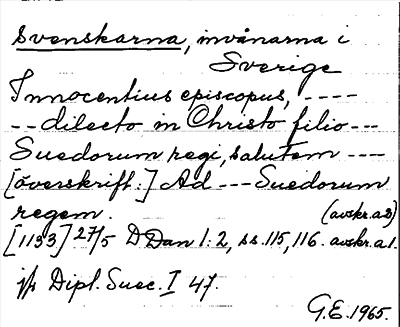 Svenskarna, invånarna i
Sverige
Innocentius episcopus, ----
-- dilecto in Christo filio ---
Suedorum regi, salutem ----
[överskrift:] Ad --- Suedorum
regem. (avskr. a 3)
[1133] 27/5 DDan 1:2, ss. 115, 116. avskr. a 1.
jfr Dipl. Suec. I 47.
G.E. 1965.